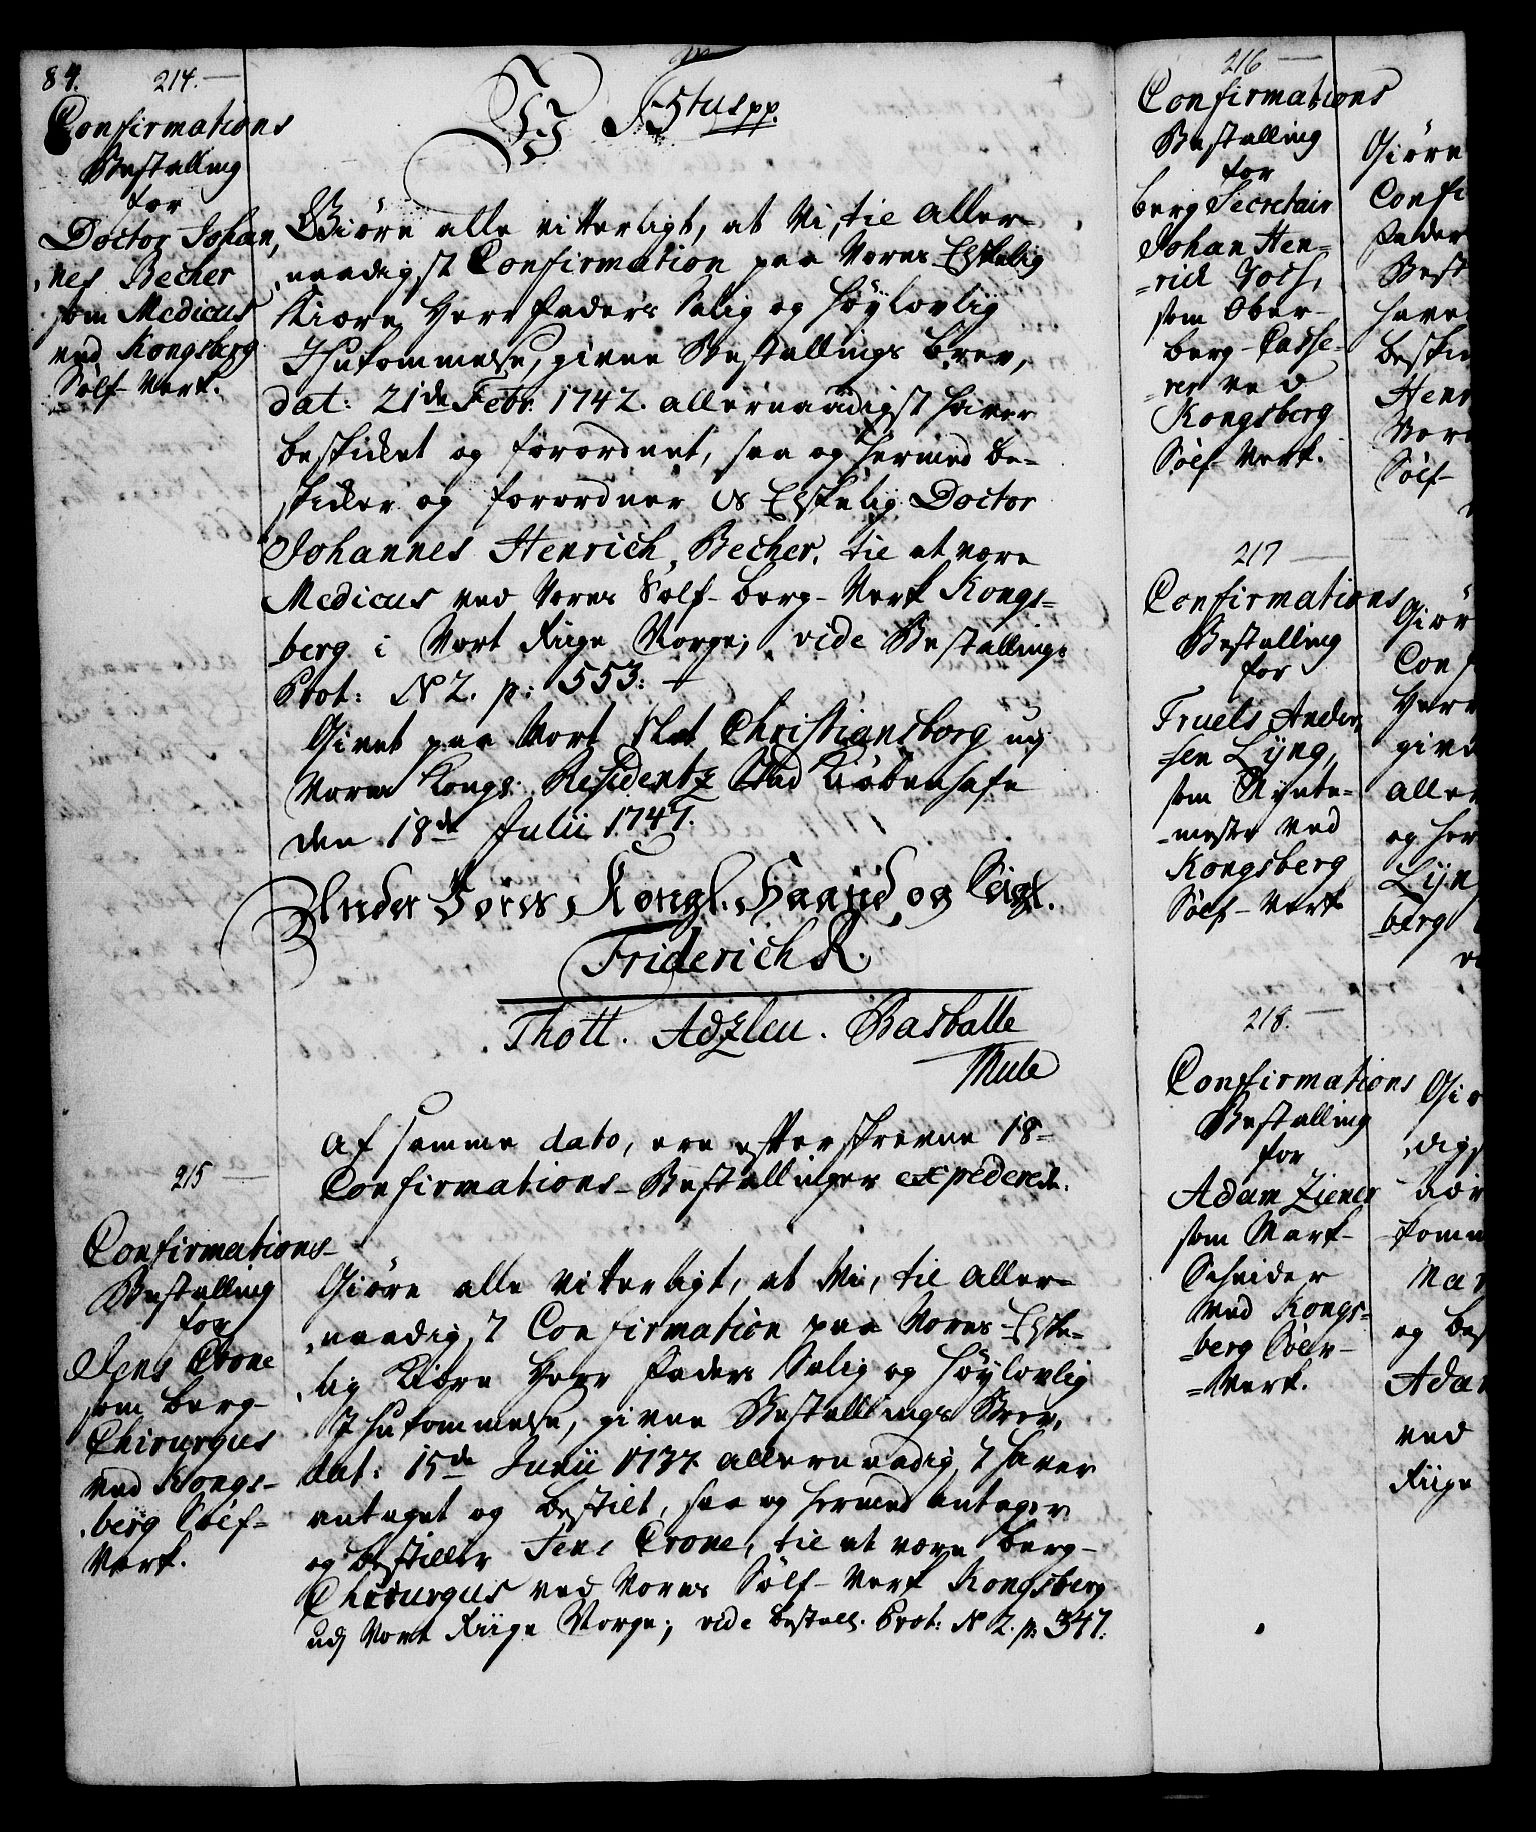 84.
214.
Confirmations
Bestalling
for
Doctor Johan,
,nes Becher
som Medicus
ved Kongsberg
Sølf Verk.
W F 5tus pp.
Giøre alle vitterligt, at Vi, til Aller-
,naadigst Confirmation paa Vores Elskelig
Kiære Herr Faders Salig og Høylovlig
Ihukommelse, givne Bestallings Brev,
dat: 21de Febr: 1742. allernaadigst haver
beskikket og forordnet, saa og hermed be-
skikker og forordner Os Elskelig Doctor
Johannes Henrich Becher, til at være
Medicus ved Vores Sølf-berg-Verk Kongs=
berg i Vort Riige Norge; vide Bestallings
Prot: N 2. p: 553:
Givet paa Vort Slot Christiansborg udj
Vores Kongl: Residentz Stad Kiøbenhafn
den 18de Julii 1747.
Under Vores Kongl. Haand og Seigl.
Friderich R.
Thott. Adzleu. Basballe
Mule
Af samme dato, ere efterskrevne 18-
Confirmations-Bestallinger expederede.
215
Confirmations-
Bestalling
for
Jens Crone
som berg-
Chirurgus
ved Kongs-
,berg Sølf=
Verk.
Giøre alle Vitterligt, at Vi, til Aller=
,naadigst Confirmation paa Vores Elske=
,lig Kiære Herr Faders Salig og Høylovlig
Ihukommelse, givne Bestallings Brev,
dat: 15de Junii 1737 allernaadigst haver
antaget og bestilt, saa og hermed antager
og bestiller Jens Crone, til at være berg-
Chirurgus ved Vores Sølf-Verk Kongsberg
udj Vort Riige Norge; vide bestall. Prot: N 2. p: 347:
216
Confirmations
Bestalling
for
berg Secretair
Johan Hen=
=rick
som Ober-
berg-Casse-
=rer ved
Kongsberg
Sølf Verk.
217
Confirmations
Bestalling
for
Truels Ander,
=sen Lyng,
som Mynte=
=mester ved
Kongsberg
Sølf-Verk
218.
Confirmations
Bestalling
for
Adam Ziener
som Mark-
Scheider
ved Kongs=
=berg Sølv-
=Verk.
Giøre
Confi
Fader
Best
have
beski
Henr
Vor
Sølf-
Giør
Con
Herr
give
Alle
og her
Lyn
=berg
Gi
,digs
Kiær
komm
Mar
og bes
Adam
ved
Riige